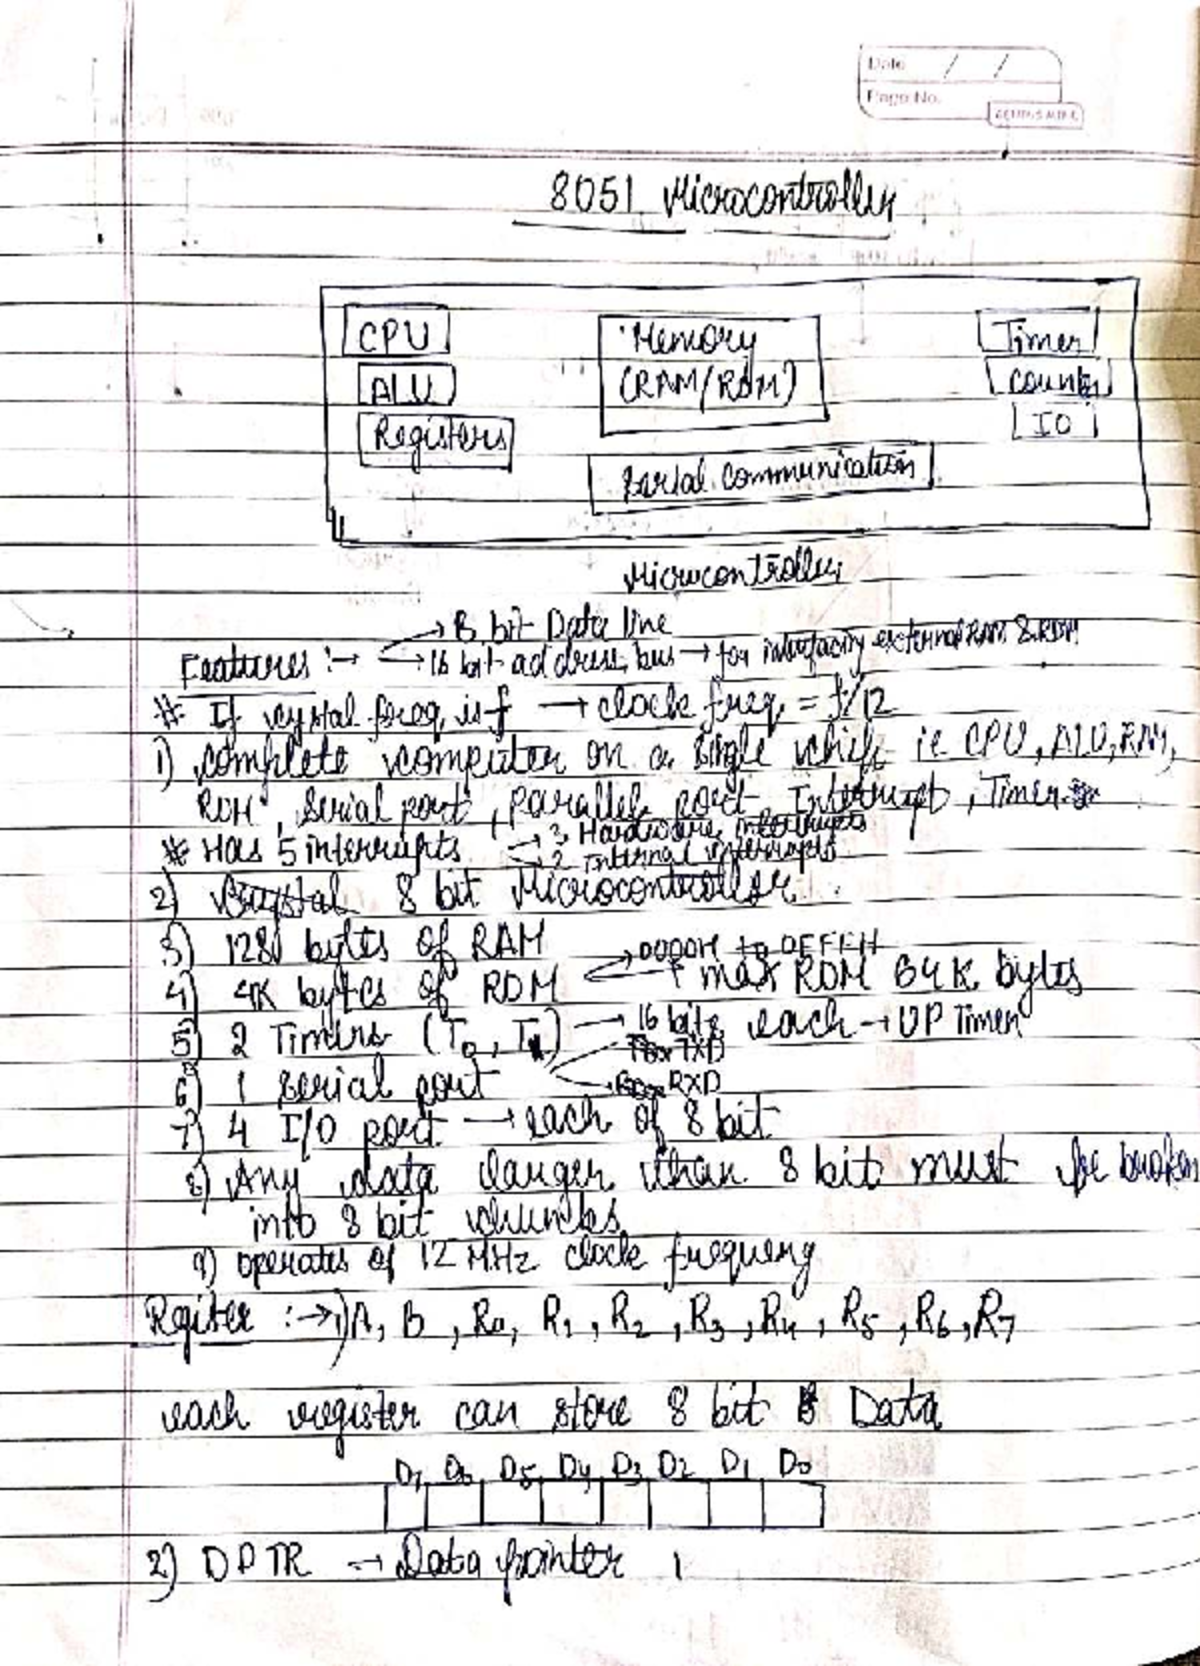 Date / /
Page No.
8051 Microcontroller
CPU
ALU
Registers
Memory
(RAM/ROM)
Serial communication
Timer
Counter
IO
Microcontroller
→ 8 bit Data line
Features :→ → 16 bit address bus → for interfacing external RAM & ROM
# If crystal freq. is f → clock freq. = f/12
1) complete computer on a single chip ie CPU, ALU, RAM,
ROM, Serial port, parallel port Interrupt, Timer
→ 3 Hardware interrupts
# Has 5 interrupts → 2 internal interrupts
2) 8 bit Microcontroller
3) 128 bytes of RAM
→ 0000H to 0FFFH
4) 4K bytes of ROM → max ROM 64K bytes
5) 2 Timers (T0, T1) → 16 bits each → UP Timer
TXD
6) 1 serial port → RXD
7) 4 I/O port → each of 8 bit
8) Any data larger than 8 bit must be broken
into 8 bit chunks
9) operates of 12 MHz clock frequency
Register :→ 1) A, B, R0, R1, R2, R3, R4, R5, R6, R7
each register can store 8 bit Data
D7 D6 D5 D4 D3 D2 D1 D0
2) DPTR → Data pointer